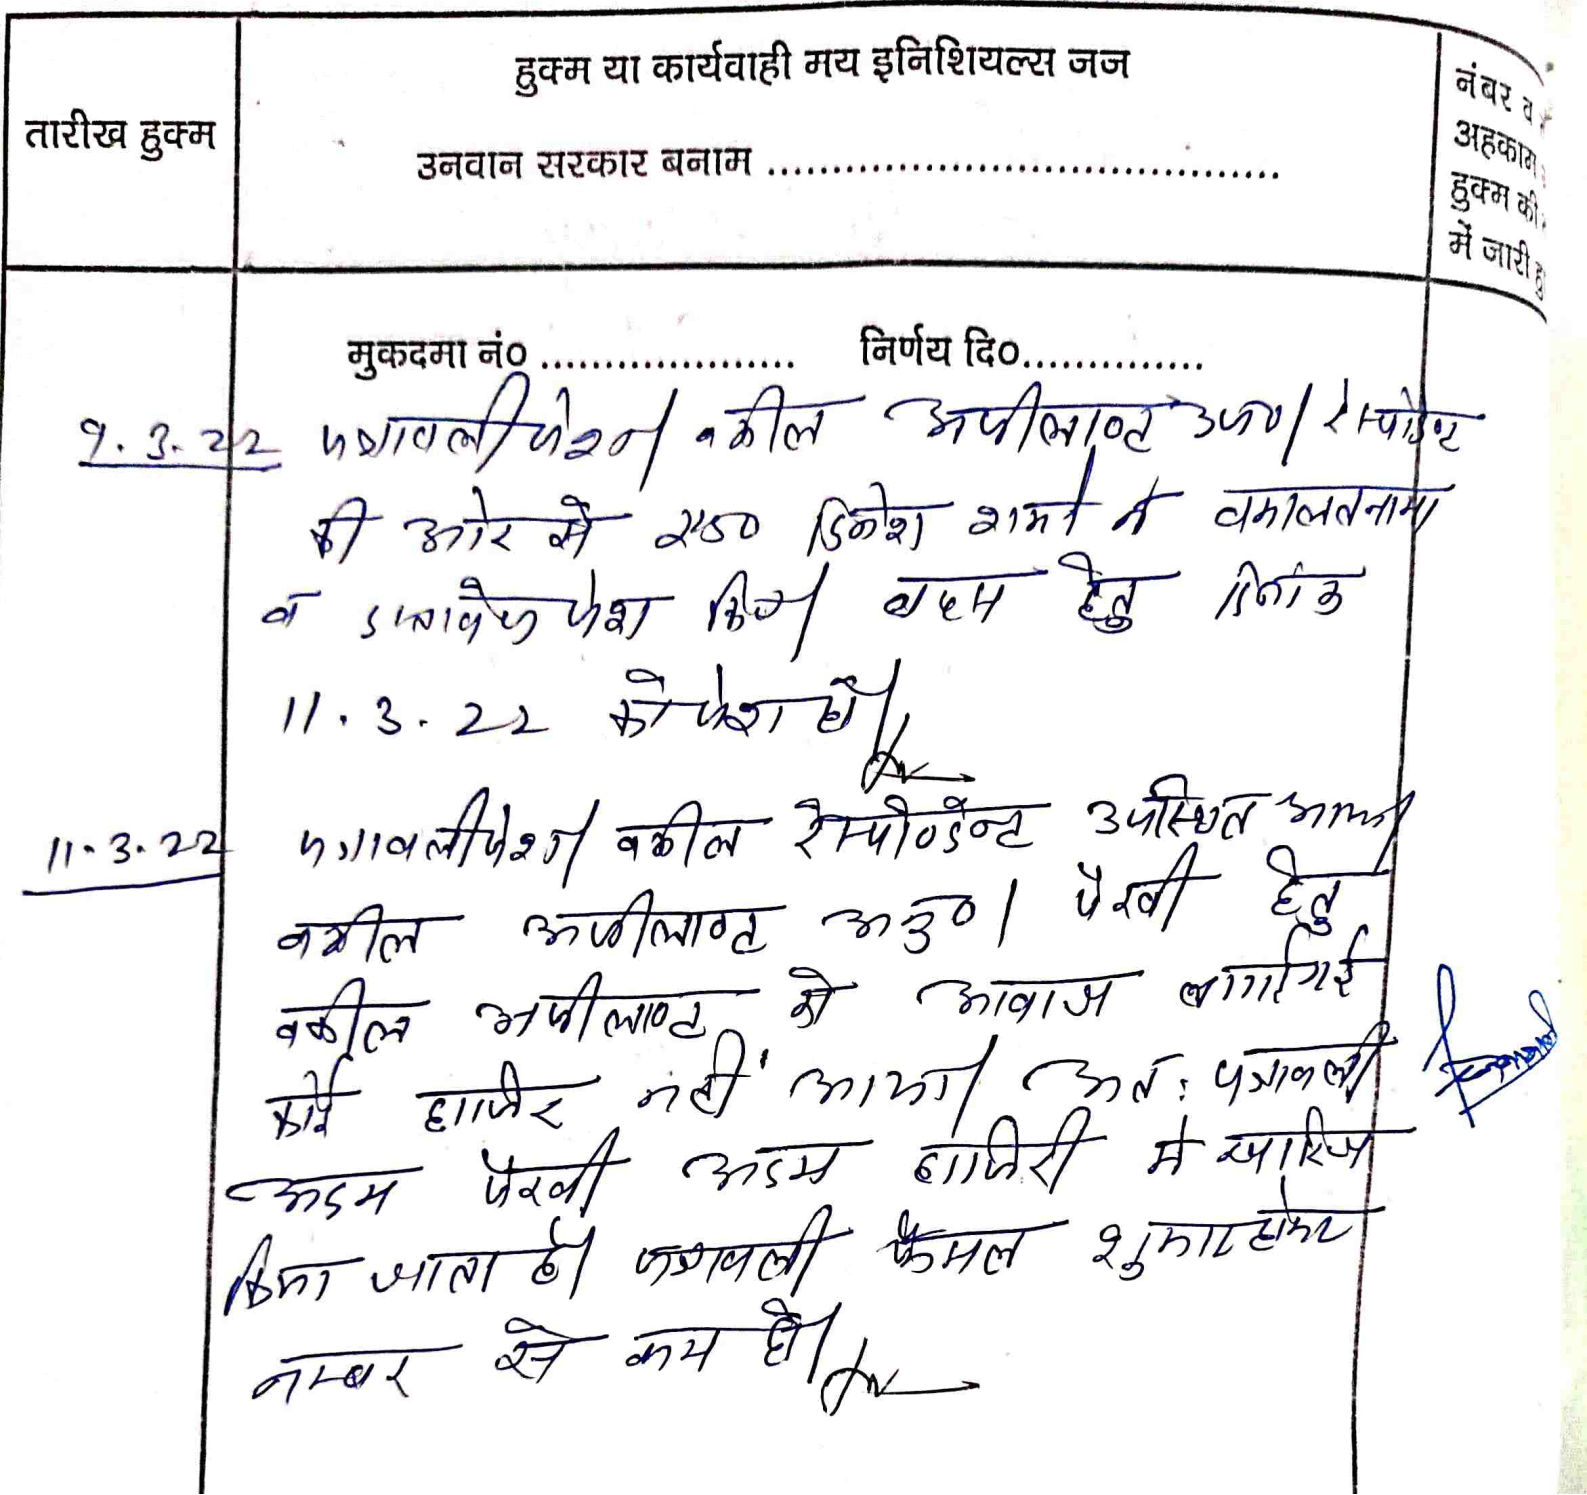 हुक्म या कार्यवाही मय इनिशियल्स जज
तारीख हुक्म
उनवान सरकार बनाम ........................................
नंबर व
अहकाम
हुक्म की
में जारी हु
मुकदमा नं० .................... निर्णय दि०..............
9.3.22 पत्रावली पेश। वकील अपीलाण्ट उप०। रेस्पोडेण्ट
की ओर से एड० दिनेश शर्मा ने वकालतनामा
व दस्तावेज पेश किए। बहस हेतु दिनांक
11.3.22 को पेश हो।
11.3.22 पत्रावली पेश। वकील रेस्पोण्डेन्ट उपस्थित आया।
वकील अपीलाण्ट अनु०। पैरवी हेतु
वकील अपीलाण्ट को आवाज लगाई गई
कोई हाजिर नहीं आया। अत: पत्रावली
अदम पैरवी अदम हाजिरी में खारिज
किया जाता है। पत्रावली फैसल शुमार होकर
नम्बर से कम हो।